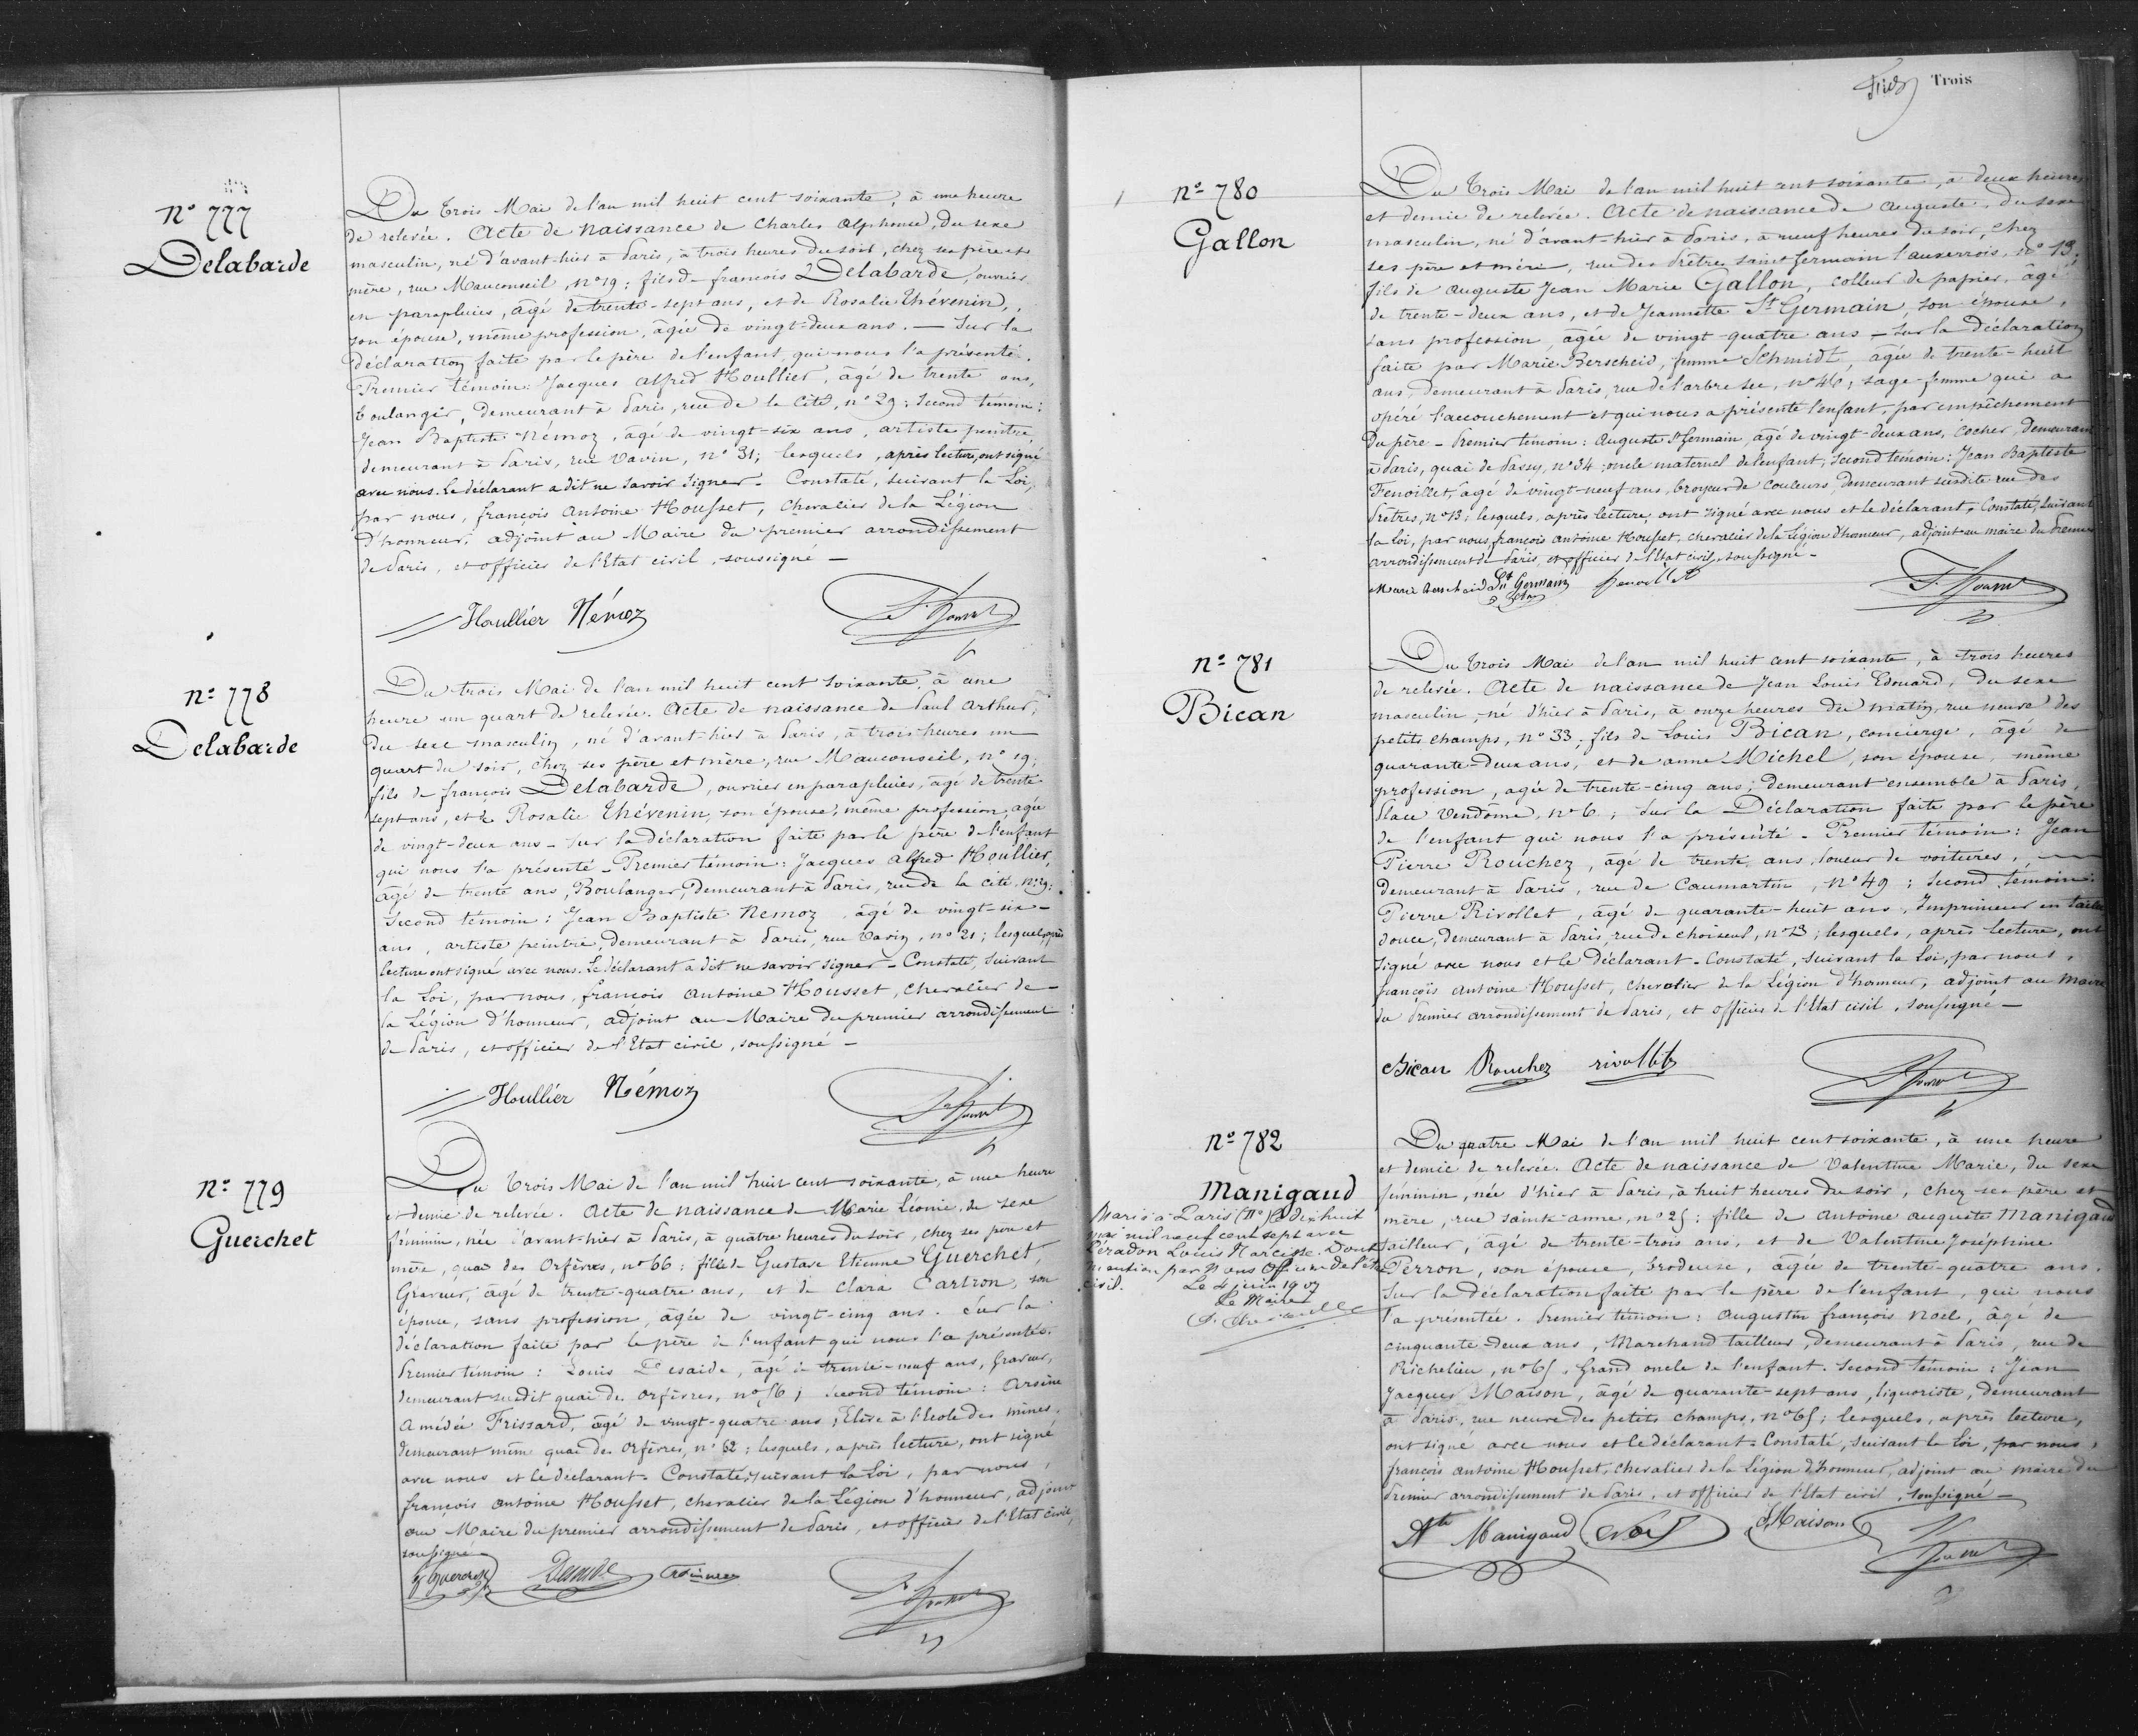 N° 777
Delabarde
Du trois Mai de l'an mil huit cent soixante, à une heure
de relevée. Acte de naissance de Charles Alphonse, du sexe
masculin, né d'avant-hier à Paris, à trois heures du soir, chez ses père et
mère, rue Mauconseil, n° 19; fils de françois Delabarde, ouvrier
en parapluies, âgé de trente-sept ans, et de Rosalie Thévenin,
son épouse, même profession, âgée de vingt-deux ans. — Sur la
déclaration faite par le père de l'enfant, qui nous l'a présenté.
Premier témoin: Jacques Alfred Houllier, âgé de trente ans,
boulanger, demeurant à Paris, rue de la Cité, n° 29; Second témoin:
Jean Baptiste Némoz, âgé de vingt-six ans, artiste peintre,
demeurant à Paris, rue Vavin, n° 31; lesquels, après lecture, ont signé
avec nous. Le déclarant a dit ne savoir signer. Constaté, suivant la Loi,
par nous, françois Antoine Housset, Chevalier de la Légion
d'honneur, adjoint au Maire du premier arrondissement
de Paris, et officier de l'Etat civil, soussigné —
Houllier Némoz
N° 778
Delabarde
Du trois Mai de l'an mil huit cent soixante, à une
heure un quart de relevée. Acte de naissance de Paul Arthur,
du sexe masculin, né d'avant-hier à Paris, à trois heures un
quart du soir, chez ses père et mère, rue Mauconseil, n° 19;
fils de françois Delabarde, ouvrier en parapluies, âgé de trente
sept ans, et de Rosalie Thévenin, son épouse, même profession, âgée
de vingt-deux ans — Sur la déclaration faite par le père de l'enfant
qui nous l'a présenté — Premier témoin: Jacques Alfred Houllier,
âgé de trente ans, Boulanger, demeurant à Paris, rue de la cité, n° 29;
Second témoin: Jean Baptiste Nemoz, âgé de vingt-six
ans, artiste peintre, demeurant à Paris, rue Vavin, n° 21; lesquels, après
lecture ont signé avec nous. Le déclarant a dit ne savoir signer — Constaté, suivant
la Loi, par nous, françois Antoine Housset, Chevalier de
la Légion d'honneur, adjoint au Maire du premier arrondissement
de Paris, et officier de l'Etat civil, soussigné —
Houllier Némoz
N° 779
Guerchet
Du trois Mai de l'an mil huit cent soixante, à une heure
et demie de relevée. Acte de naissance de Marie Léonie, du sexe
féminin, née d'avant-hier à Paris, à quatre heures du soir, chez ses père et
mère, quai des Orfèvres, n° 66; fille de Gustave Etienne Guerchet,
Graveur, âgé de trente-quatre ans, et de Clara Cartron, son
épouse, sans profession, âgée de vingt-cinq ans. Sur la
déclaration faite par le père de l'enfant qui nous l'a présentée.
Premier témoin: Louis Desaide, âgé de trente-neuf ans, Graveur,
demeurant susdit quai des orfèvres, n° 56; second témoin: Arsène
Amédée Frissard, âgé de vingt-quatre ans, Elève à l'Ecole des mines,
demeurant même quai des Orfèvres, n° 62; lesquels, après lecture, ont signé
avec nous et le déclarant. Constaté, suivant la Loi, par nous,
françois Antoine Housset, chevalier de la Légion d'honneur, adjoint
au Maire du premier arrondissement de Paris, et officier de l'Etat civil,
soussigné
G Guerchet Desaide
Trois
N° 780
Gallon
Du trois Mai de l'an mil huit cent soixante, à deux heures
et demie de relevée. Acte de naissance de Auguste, du sexe
masculin, né d'avant-hier à Paris, à neuf heures du soir, chez
ses père et mère, rue des Prêtres saint Germain l'auxerrois, n° 13;
fils de Auguste Jean Marie Gallon, colleur de papier, âgé
de trente-deux ans, et de Jeannette St Germain, son épouse,
sans profession, âgée de vingt-quatre ans — Sur la déclaration
faite par Marie Berscheid, femme Schmidt, âgée de trente-huit
ans, demeurant à Paris, rue de l'arbre sec, n° 46, sage-femme qui a
opéré l'accouchement et qui nous a présenté l'enfant, par empêchement
du père — Premier témoin: Auguste St Germain, âgé de vingt-deux ans, Cocher, demeurant
à Paris, quai de Passy, n° 34, oncle maternel de l'enfant; second témoin: Jean Baptiste
Fenoillet, âgé de vingt-neuf ans, broyeur de Couleurs, demeurant susdite rue des
Prêtres, n° 13; lesquels, après lecture, ont signé avec nous et le déclarant. Constaté, suivant
la Loi, par nous, françois antoine Housset, chevalier de la Légion d'honneur, adjoint au maire du Premier
arrondissement de Paris, et officier de l'Etat civil, soussigné —
Marie Berscheid St Germain Fenoillet
N° 781
Bican
Du trois Mai de l'an mil huit cent soixante, à trois heures
de relevée. Acte de naissance de Jean Louis Edouard, du sexe
masculin, né d'hier à Paris, à onze heures du matin, rue neuve des
petits champs, n° 33; fils de Louis Bican, concierge, âgé de
quarante-deux ans, et de anne Michel, son épouse, même
profession, âgée de trente-cinq ans; demeurant ensemble à Paris,
Place Vendôme, n° 6; Sur la Déclaration faite par le père
de l'enfant qui nous l'a présenté — Premier témoin: Jean
Pierre Rouchez, âgé de trente ans, loueur de voitures,
demeurant à Paris, rue de Caumartin, n° 49; Second témoin:
Pierre Rivollet, âgé de quarante-huit ans, Imprimeur en taille
douce, demeurant à Paris, rue de choiseul, n° 13; lesquels, après lecture, ont
signé avec nous et le déclarant. Constaté, suivant la Loi, par nous,
françois Antoine Housset, Chevalier de la Légion d'honneur, adjoint au Maire
du Premier arrondissement de Paris, et officier de l'Etat civil, soussigné —
Bican Rouchez rivollet
N° 782
Manigaud
Marié à Paris (II°) le dix huit
mai mil neuf cent sept avec
Péradon Louis Narcisse. Dont
mention par Nous Officier de l'état
civil. Le 4 juin 1907
Le Maire
Du quatre Mai de l'an mil huit cent soixante, à une heure
et demie de relevée. Acte de naissance de Valentine Marie, du sexe
féminin, née d'hier à Paris, à huit heures du soir, chez ses père et
mère, rue sainte-anne, n° 25; fille de Antoine auguste Manigaud
tailleur, âgé de trente-trois ans, et de Valentine Joséphine
Perron, son épouse, brodeuse, âgée de trente-quatre ans.
Sur la déclaration faite par le père de l'enfant, qui nous
l'a présentée. Premier témoin: Augustin françois Noël, âgé de
cinquante-deux ans, Marchand tailleur, demeurant à Paris, rue de
Richelieu, n° 65, Grand oncle de l'enfant. Second témoin: Jean
Jacques Maison, âgé de quarante-sept ans, liquoriste, demeurant
à Paris, rue neuve des petits champs, n° 65; lesquels, après lecture,
ont signé avec nous et le déclarant. Constaté, suivant la Loi, par nous,
françois antoine Housset, chevalier de la Légion d'honneur, adjoint au maire du
Premier arrondissement de Paris, et officier de l'Etat civil, soussigné —
Ate Manigaud Noël Maison